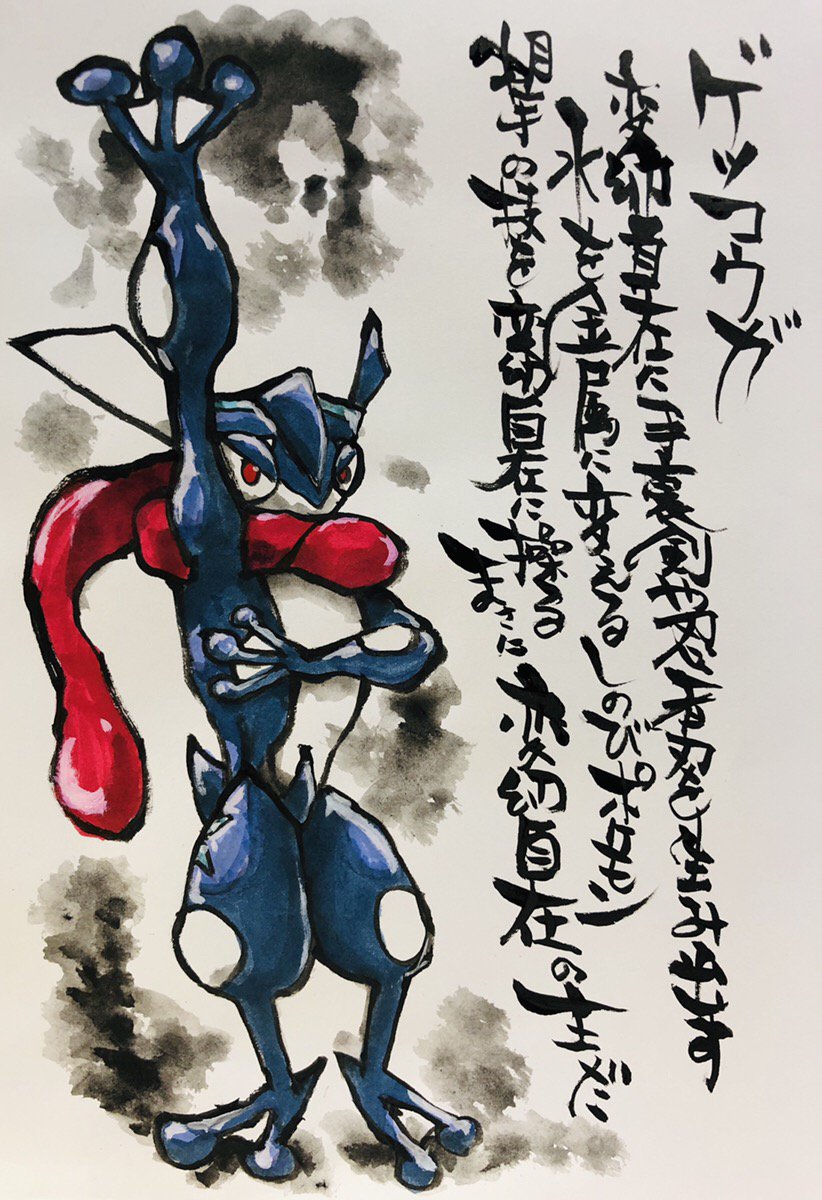 ゲッコウガ
変幻自在に手裏剣や忍者刀を生み出す
水を金属に変えるしのびポケモン
の技を変幻自在に操る
まさに変幻自在の主だ